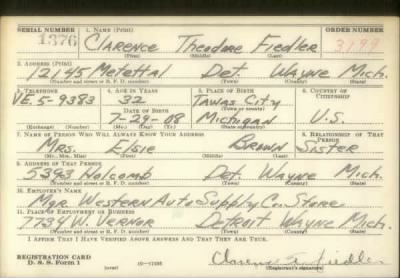 SERIAL NUMBER 1. NAME (Print) ORDER NUMBER
1376 CLARENCE Theodore Fiedler 3199
(First) (Middle) (Last)
2. ADDRESS (Print)
12145 Metettal Det. Wayne Mich.
(Number and street or R. F. D. number) (Town) (County) (State)
3. TELEPHONE 4. AGE IN YEARS 5. PLACE OF BIRTH 6. COUNTRY OF CITIZENSHIP
VE. 5-9383 32 TAWAS CITY
(Town or county)
DATE OF BIRTH
7-29-08 Michigan U.S.
(Exchange) (Number) (Mo.) (Day) (Yr.) (State or country)
7. NAME OF PERSON WHO WILL ALWAYS KNOW YOUR ADDRESS 8. RELATIONSHIP OF THAT PERSON
MRS. Elsie BROWN SISTER
(Mr., Mrs., Miss) (First) (Middle) (Last)
9. ADDRESS OF THAT PERSON
5393 Holcomb Det. Wayne Mich.
(Number and street or R. F. D. number) (Town) (County) (State)
10. EMPLOYER'S NAME
Mgr. Western Auto Supply Co. Store
11. PLACE OF EMPLOYMENT OR BUSINESS
7734 W. Vernor Detroit Wayne Mich.
(Number and street or R. F. D. number) (Town) (County) (State)
I AFFIRM THAT I HAVE VERIFIED ABOVE ANSWERS AND THAT THEY ARE TRUE.
REGISTRATION CARD
D. S. S. Form 1 (over) Clarence Fiedler
(Registrant's signature)